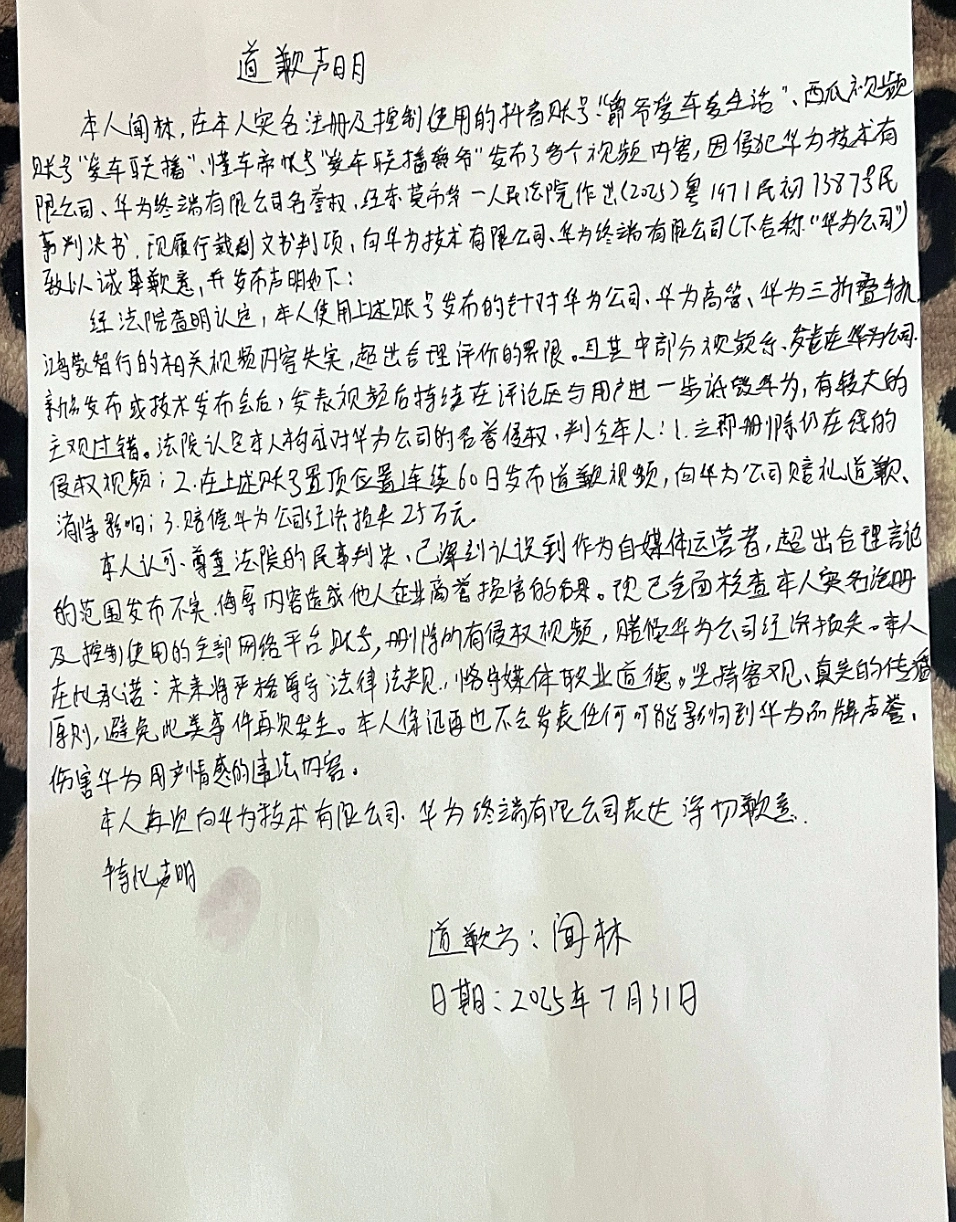 道歉声明
本人闻林，在本人实名注册及控制使用的抖音账号“爵爷爱车爱生活”、西瓜视频
账号“爱车联播”、懂车帝帐号“爱车联播爵爷”发布了多个视频内容，因侵犯华为技术有
限公司、华为终端有限公司名誉权，经东莞市第一人民法院作出(2025)粤1971民初13873号民
事判决书，现履行裁判文书判项，向华为技术有限公司、华为终端有限公司(下合称“华为公司”)
致以诚挚歉意，并发布声明如下：
经法院查明认定，本人使用上述账号发布的针对华为公司、华为高管、华为三折叠手机、
鸿蒙智行的相关视频内容失实，超出合理评价的界限。且其中部分视频系发表在华为公司
新品发布或技术发布会后，发表视频后持续在评论区与用户进一步诋毁华为，有较大的
主观过错。法院认定本人构成对华为公司的名誉侵权，判令本人：1.立即删除仍在线的
侵权视频；2.在上述账号置顶位置连续60日发布道歉视频，向华为公司赔礼道歉、
消除影响；3.赔偿华为公司经济损失25万元。
本人认可、尊重法院的民事判决，已深刻认识到作为自媒体运营者，超出合理言论
的范围发布不实、侮辱内容造成他人企业商誉损害的后果。现已全面核查本人实名注册
及控制使用的全部网络平台账号，删除所有侵权视频，赔偿华为公司经济损失。本人
在此承诺：未来将严格遵守法律法规，恪守媒体职业道德。坚持客观、真实的传播
原则，避免此类事件再次发生。本人保证再也不会发表任何可能影响到华为品牌声誉、
伤害华为用户情感的违法内容。
本人再次向华为技术有限公司、华为终端有限公司表达深切歉意。
特此声明
道歉方：闻林
日期：2025年7月31日